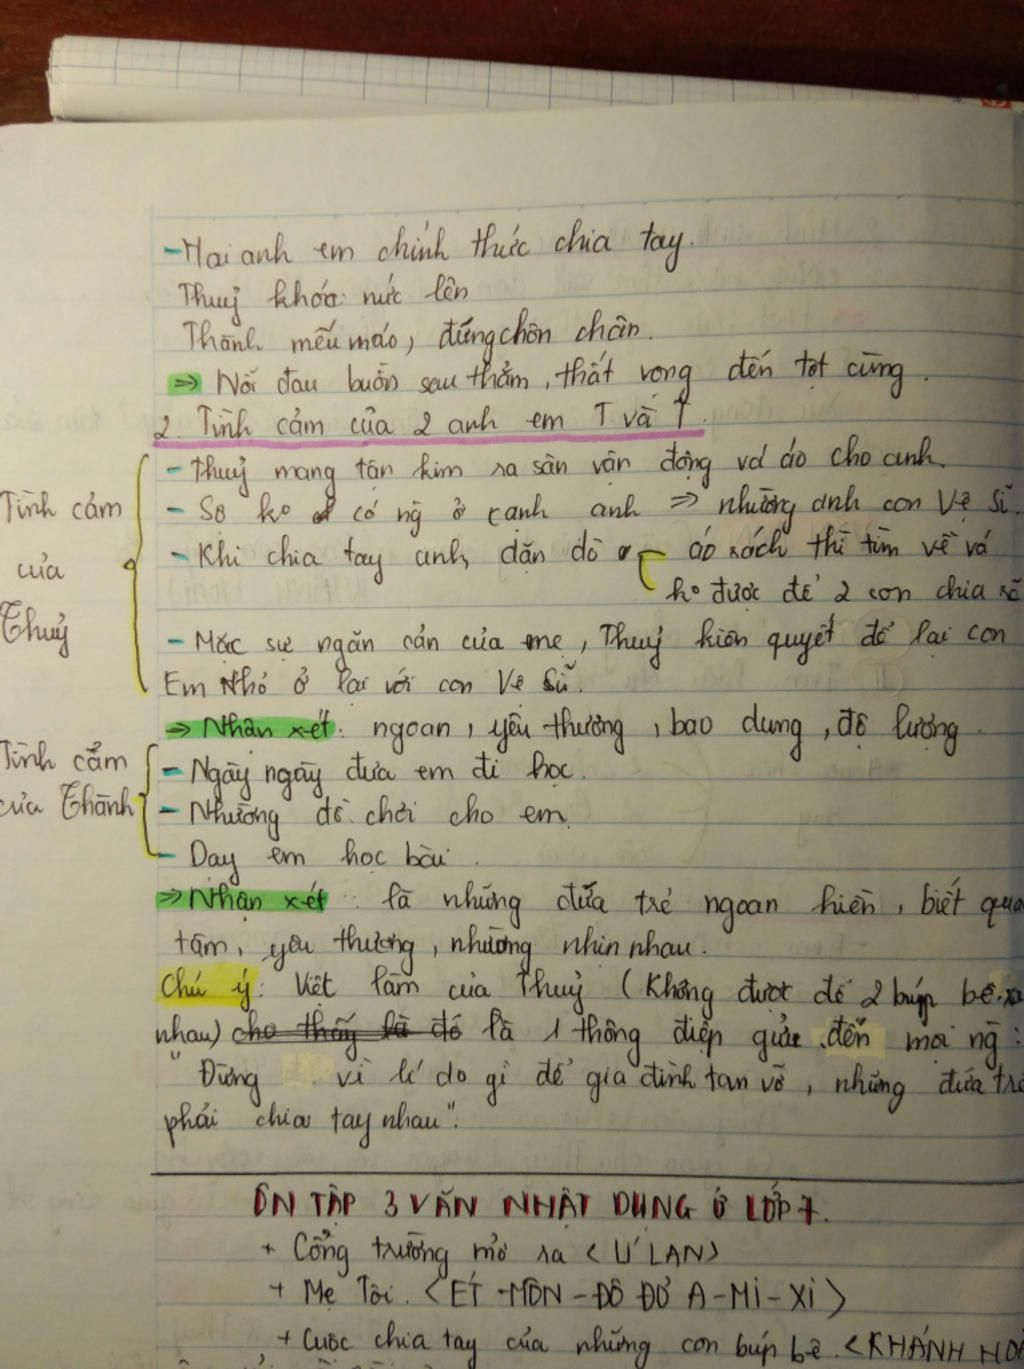 - Hai anh em chính thức chia tay.
Thuỷ khóc nức lên
Thành mếu máo, đứng chôn chân.
⇒ Nỗi đau buồn sâu thẳm, thất vọng đến tột cùng.
2. Tình cảm của 2 anh em T và T.
Tình cảm của Thuỷ
- Thuỷ mang tận kim ra sân vận động vá áo cho anh.
- Sợ ko có ng ở cạnh anh ⇒ nhường anh con Vệ Sĩ.
- Khi chia tay anh, dặn dò áo rách thì tìm về vá
ko được để 2 con chia rẽ
- Mặc sự ngăn cản của mẹ, Thuỷ kiên quyết để lại con
Em Nhỏ ở lại với con Vệ Sĩ.
⇒ Nhận xét: ngoan, yêu thương, bao dung, độ lượng
Tình cảm của Thành
- Ngày ngày đưa em đi học.
- Nhường đồ chơi cho em.
- Dạy em học bài.
⇒ Nhận xét: là những đứa trẻ ngoan hiền, biết qua
tâm, yêu thương, nhường nhịn nhau.
Chú ý: Việc làm của Thuỷ (Không được để 2 búp bê xa
nhau) cho thấy là đó là 1 thông điệp gửi đến mọi ng:
"Đừng vì lí do gì để gia đình tan vỡ, những đứa trẻ
phải chia tay nhau".
ÔN TẬP 3 VĂN NHẬT DỤNG Ở LỚP 7.
+ Cổng trường mở ra <LÍ LAN>
+ Mẹ Tôi. <ÉT-MÔN-ĐÔ ĐỜ A-MI-XI>
+ Cuộc chia tay của những con búp bê <KHÁNH HOÀ